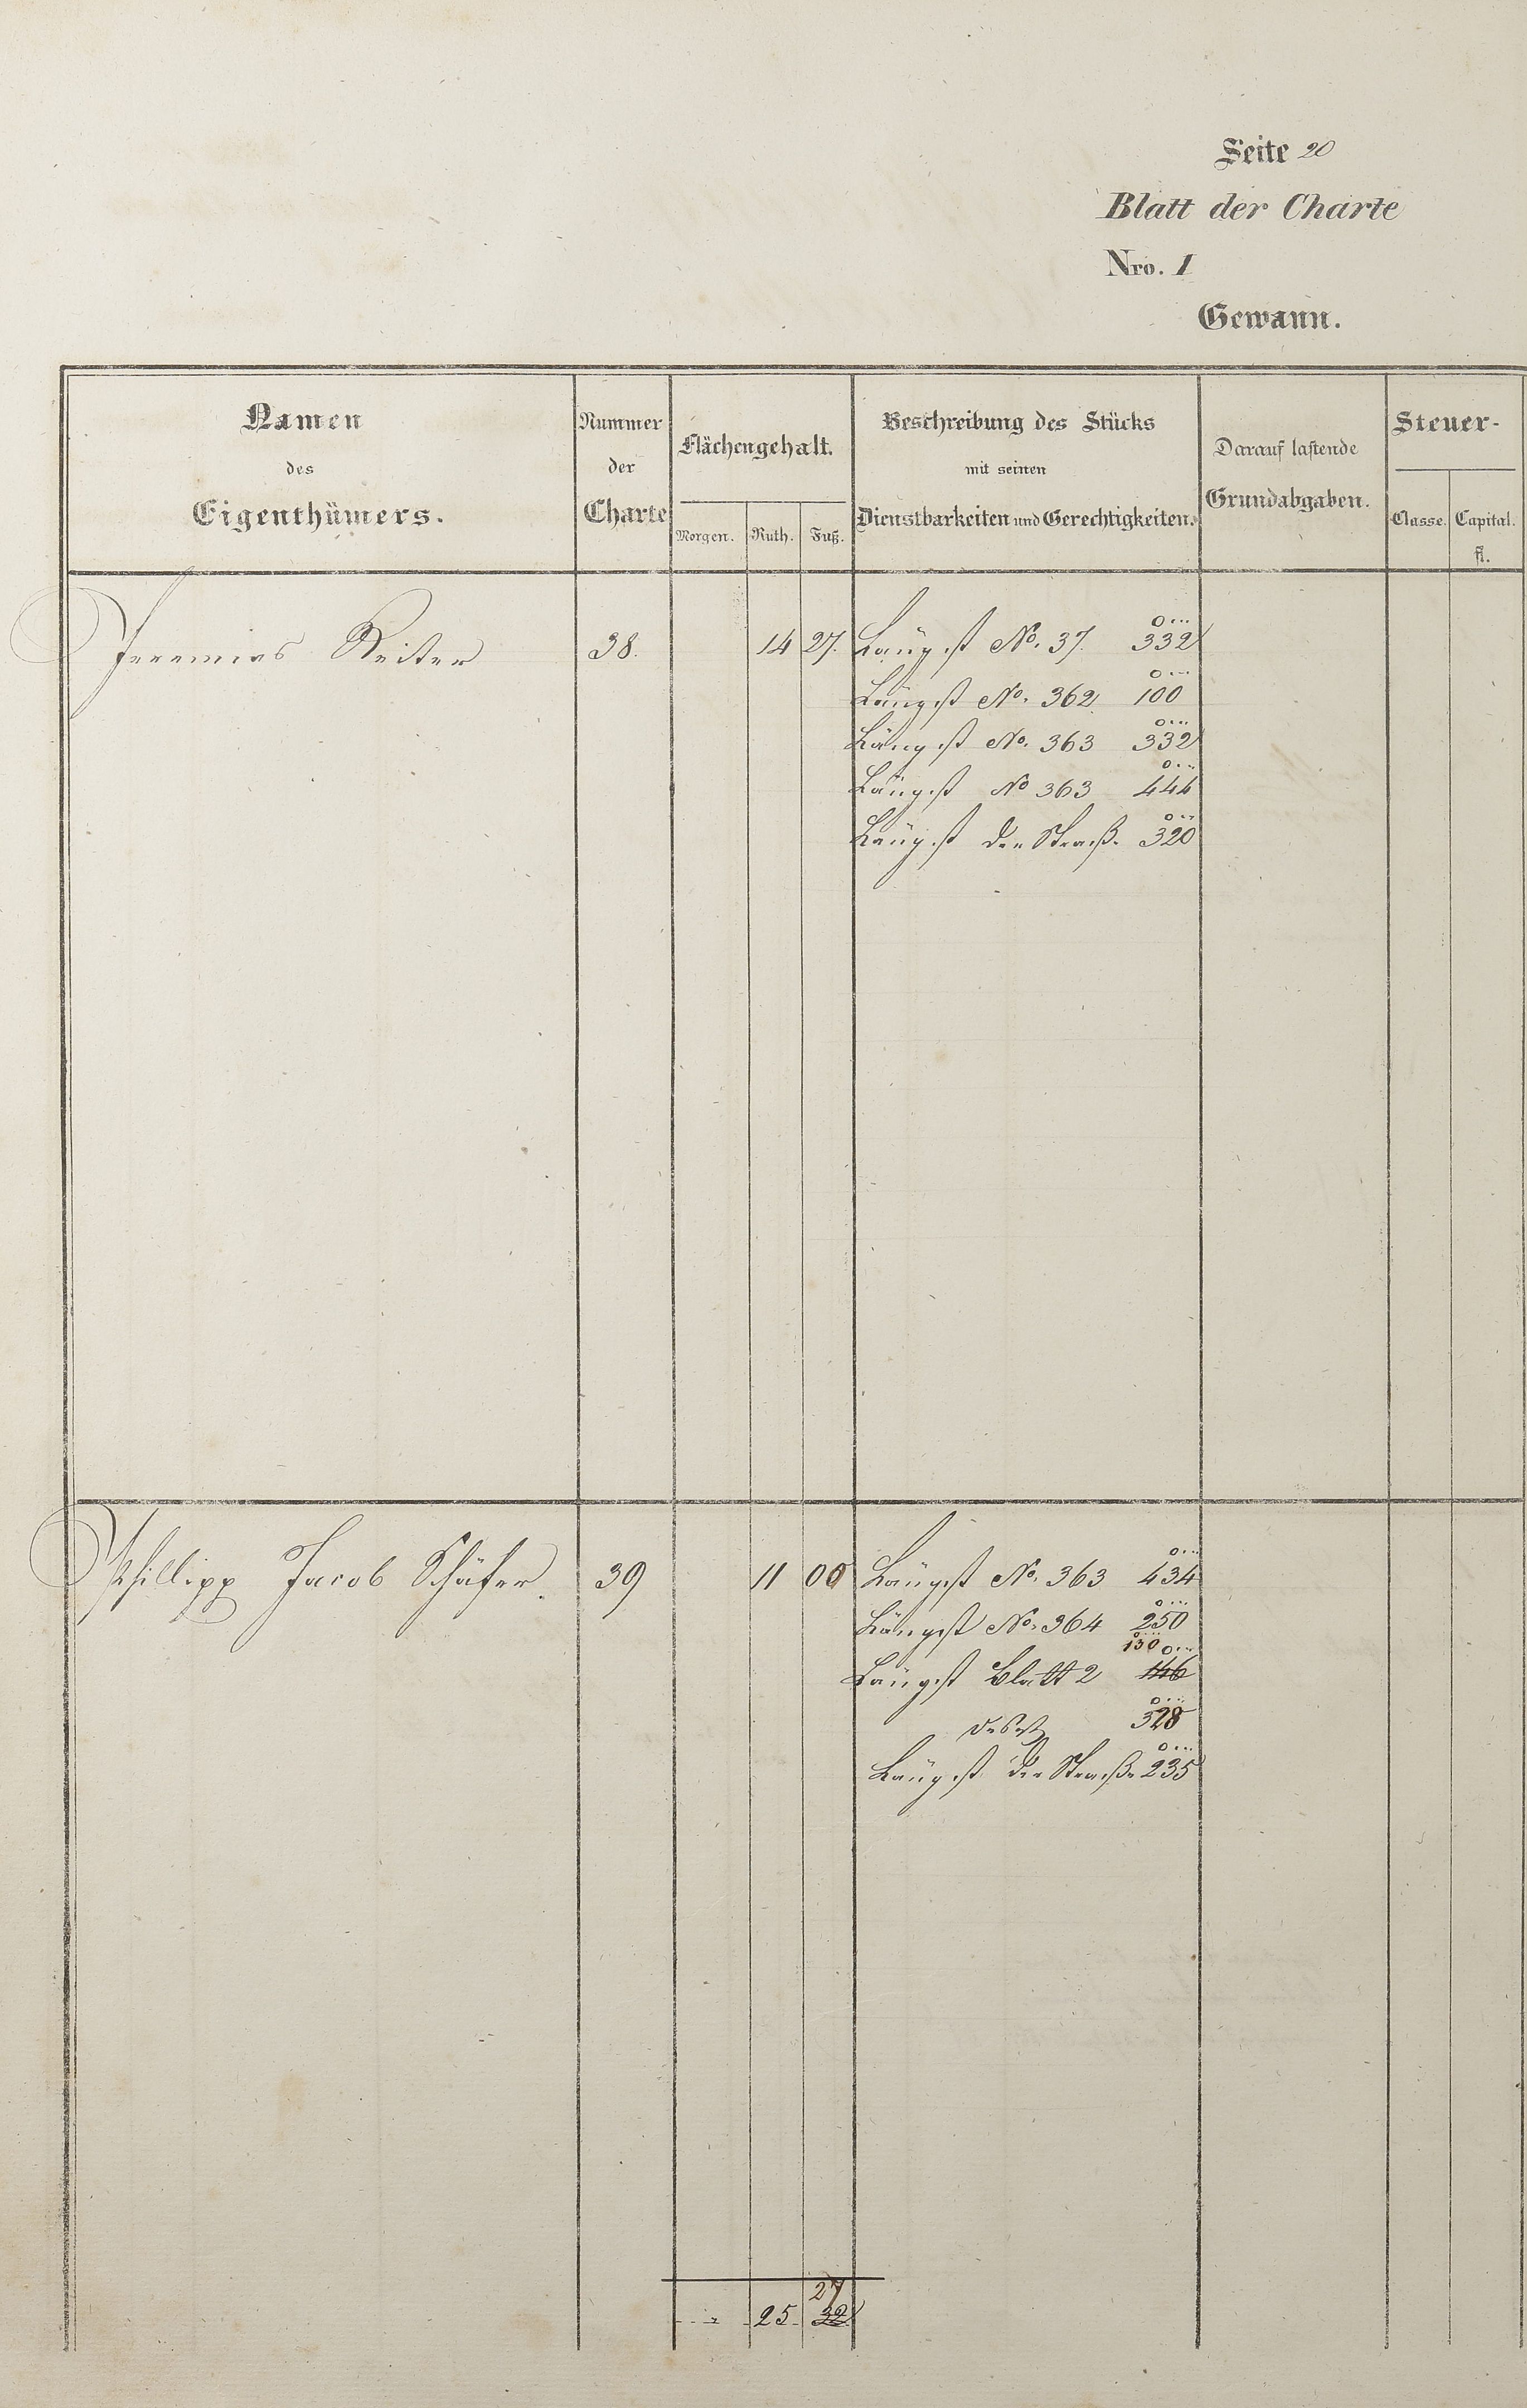 Seite 20
Blatt der Charte
Nro. 1
Gewann.
Namen des Eigenthümers.
Nummer der Charte
Flächengehalt.
Morgen. Ruth. Fuß.
Beschreibung des Stücks mit seinen Dienstbarkeiten und Gerechtigkeiten.
Darauf lastende Grundabgaben.
Steuer-
Classe. Capital. fl.
Jeremias Reiter 38. 14 27. Längst No. 37. 332
Längst No. 362 100
Längst No. 363 332
Längst No 363 444
Längst der Straße 320
Phillipp Jacob Schäfer. 39 11 00 Längst No. 363 434
Längst No. 364 250
130
Längst Blatt 2 146
328
Längst der Straße 235
27
25 32